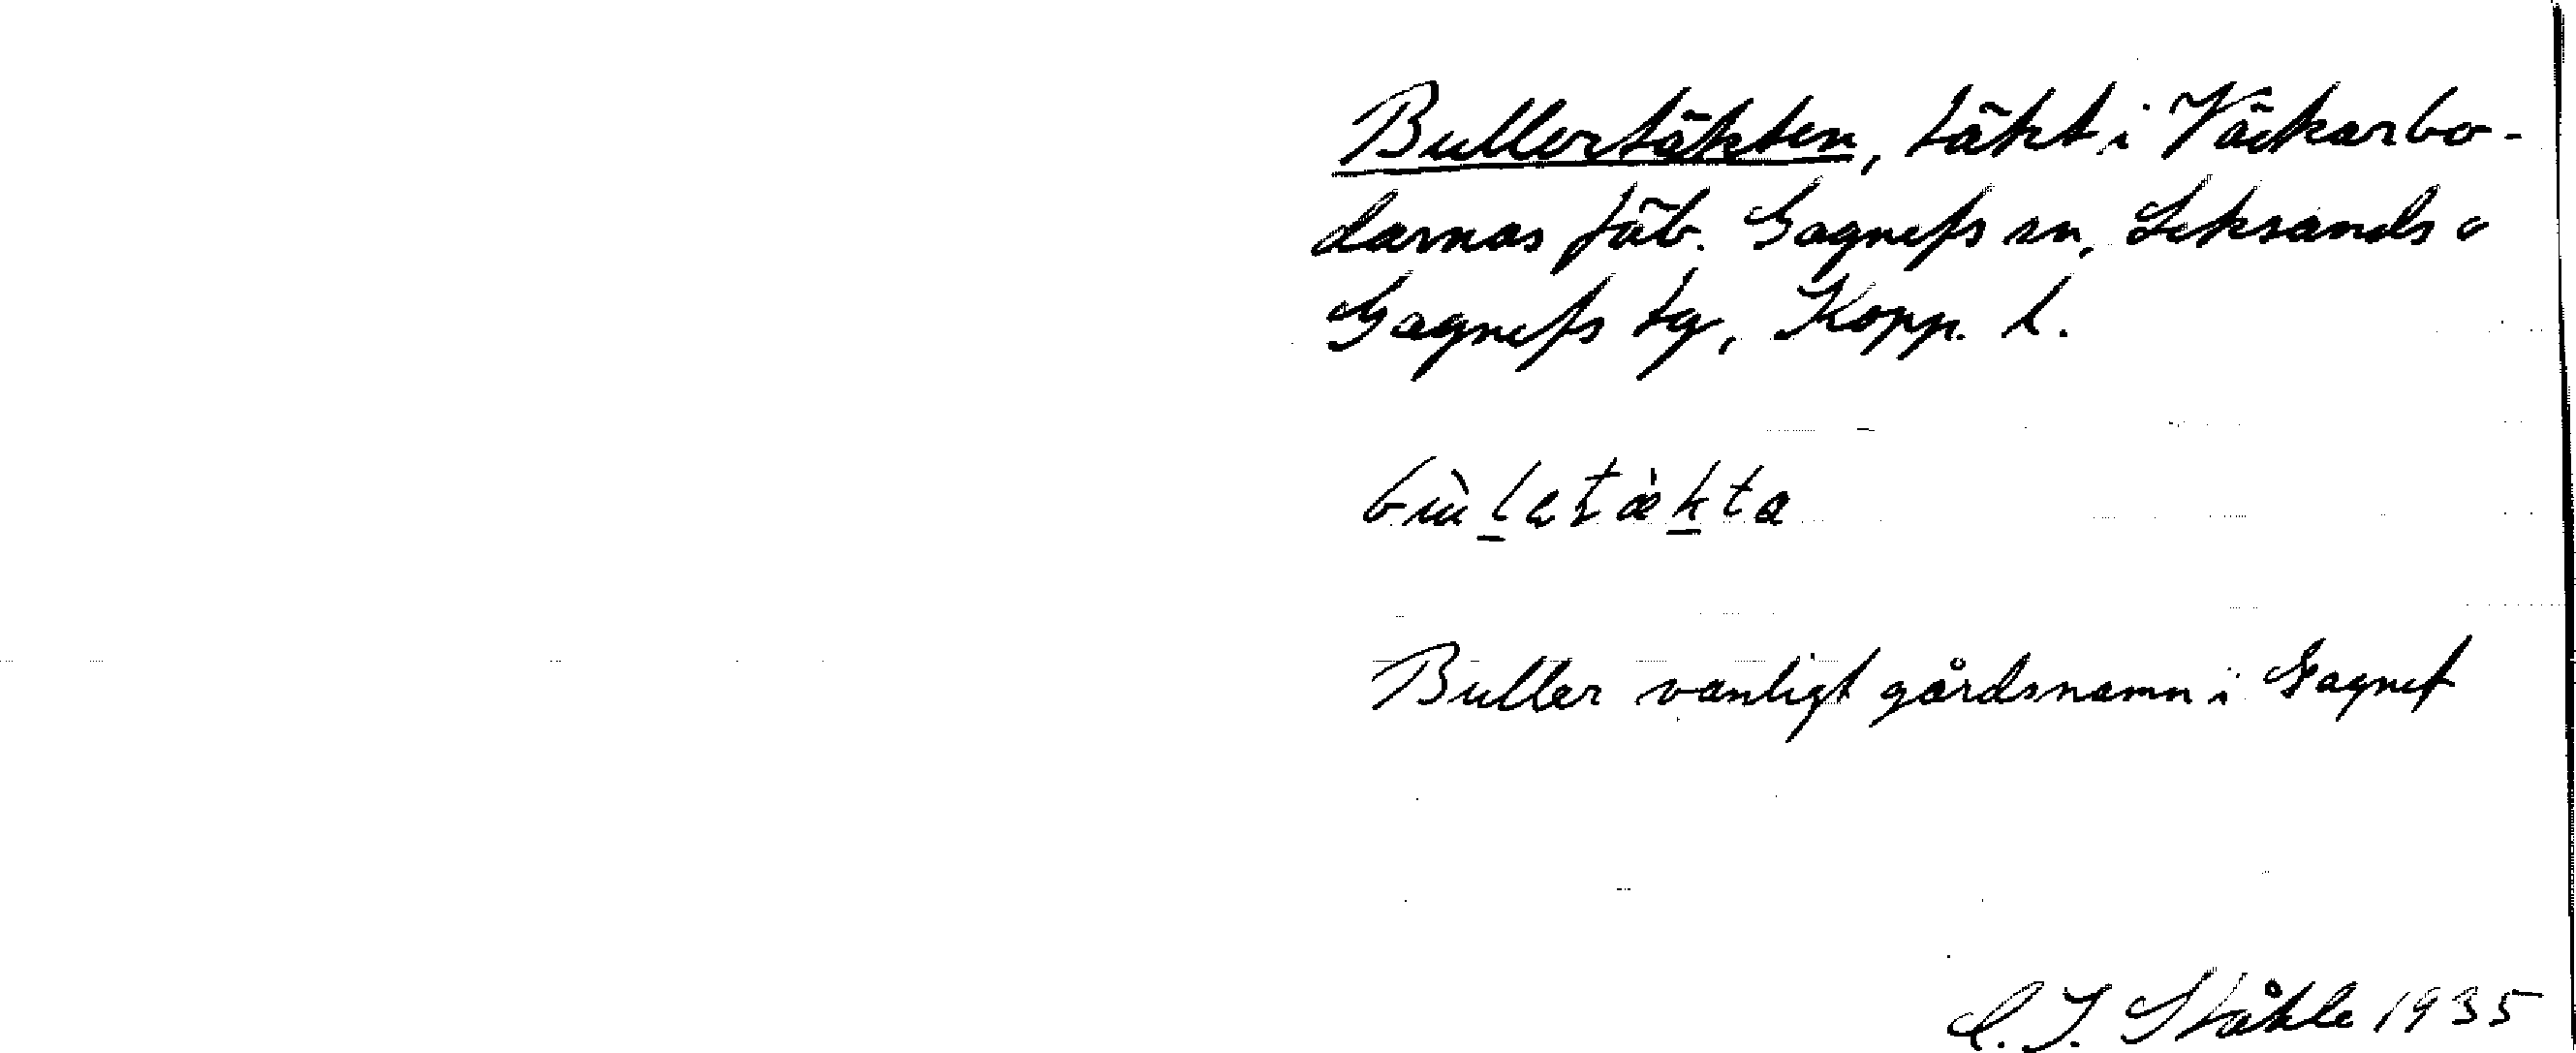 Bullertäkten, täkt i Väckarbo-
darnas fäb. Gagnefs sn, Leksands o
Gagnefs tg, Kopp. l.
bùlatækta
Buller vanligt gårdsnamn i Gagnef
C. I. Ståhle 1935